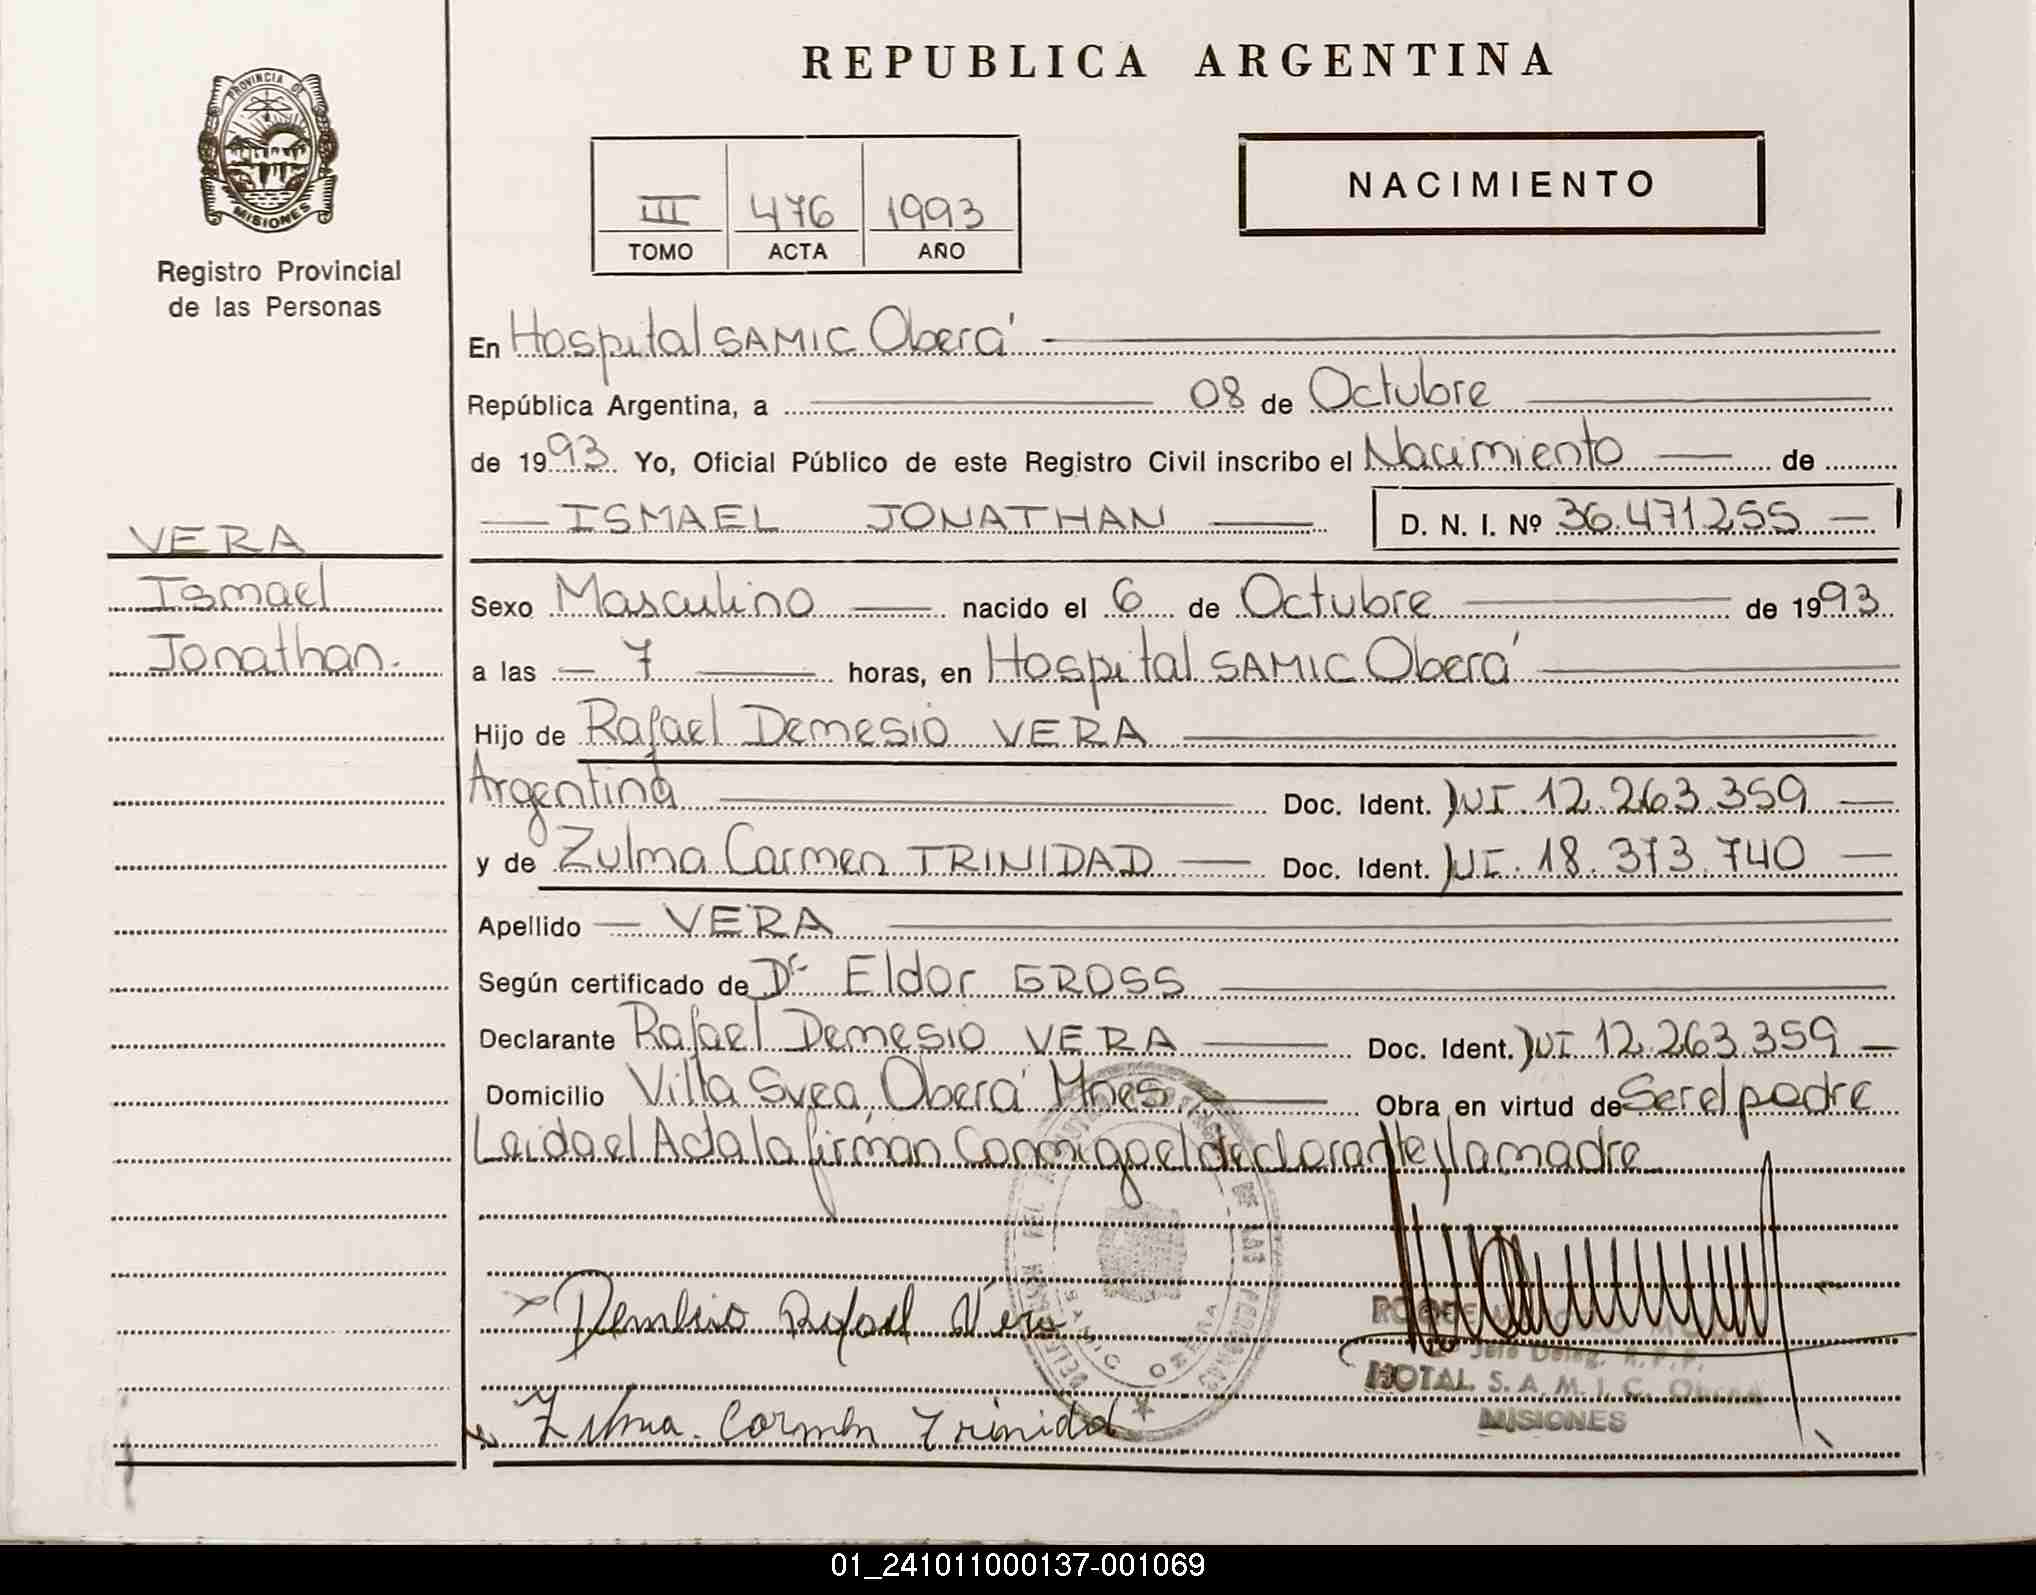 REPUBLICA ARGENTINA
PROVINCIA DE
MISIONES
Registro Provincial
de las Personas
III 476 1993
TOMO ACTA AÑO
NACIMIENTO
En Hospital SAMIC Oberá
República Argentina, a 08 de Octubre
de 1993 Yo, Oficial Público de este Registro Civil inscribo el Nacimiento de
ISMAEL JONATHAN D. N. I. Nº 36.471.255
VERA
Ismael
Jonathan.
Sexo Masculino nacido el 6 de Octubre de 1993
a las 7 horas, en Hospital SAMIC Oberá
Hijo de Rafael Demesio VERA
Argentina Doc. Ident. DNI. 12.263.359
y de Zulma Carmen TRINIDAD Doc. Ident. DNI. 18.373.740
Apellido VERA
Según certificado de Dr Eldor GROSS
Declarante Rafael Demesio VERA Doc. Ident. DNI 12.263.359
Domicilio Villa Svea, Oberá Mnes. Obra en virtud de Ser el padre
Leida el Acta la firman Conmigo el declarante y la madre
Rafael Vera
Zulma. Carmen Trinidad
DE LAS PERSONAS
SAMIC OBERA
Jefe Deleg. R.P.P.
HOTAL. S.A.M.I.C. Oberá
MISIONES
01_241011000137-001069